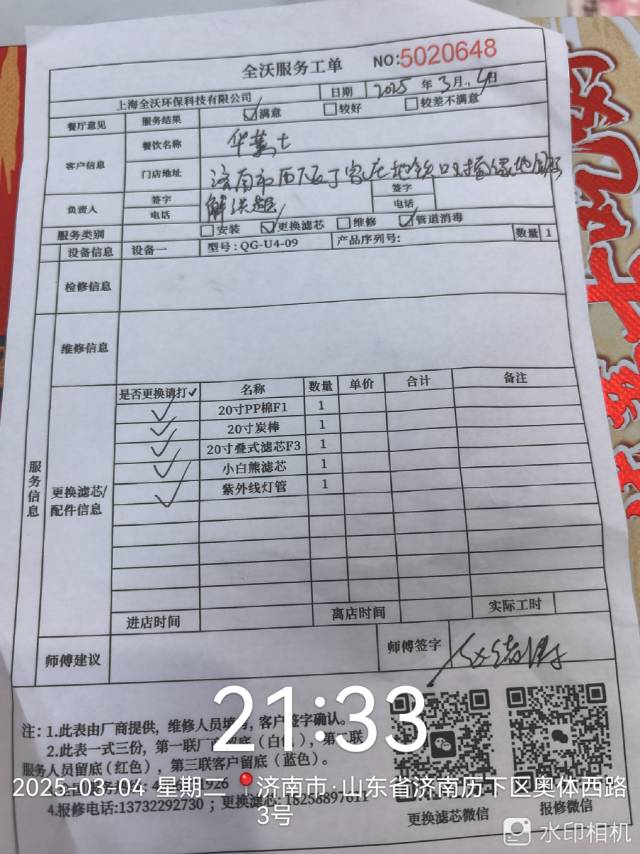 全沃服务工单 NO:5020648
上海全沃环保科技有限公司 日期 2025年3月4日
餐厅意见 服务结果 ☑满意 □较好 □较差不满意
客户信息 餐饮名称 华莱士
门店地址 济南市历下区丁家庄地铁口
负责人 签字 签字
电话 电话
服务类别 □安装 ☑更换滤芯 □维修 ☑管道消毒
设备信息 设备一 型号:QG-U4-09 产品序列号: 数量 1
检修信息
维修信息
服务信息
更换滤芯/配件信息
是否更换请打✓ 名称 数量 单价 合计 备注
✓ 20寸PP棉F1 1
✓ 20寸炭棒 1
✓ 20寸叠式滤芯F3 1
✓ 小白熊滤芯 1
✓ 紫外线灯管 1
进店时间 离店时间 实际工时
师傅建议 师傅签字
21:33
注:1.此表由厂商提供,维修人员填写,客户签字确认。
2.此表一式三份,第一联厂商留底(白色),第二联
服务人员留底(红色),第三联客户留底(蓝色)。
2025-03-04 星期二 济南市·山东省济南历下区奥体西路
3号
4.报修电话:13732292730;更换滤芯:18258897611
更换滤芯微信 报修微信
水印相机